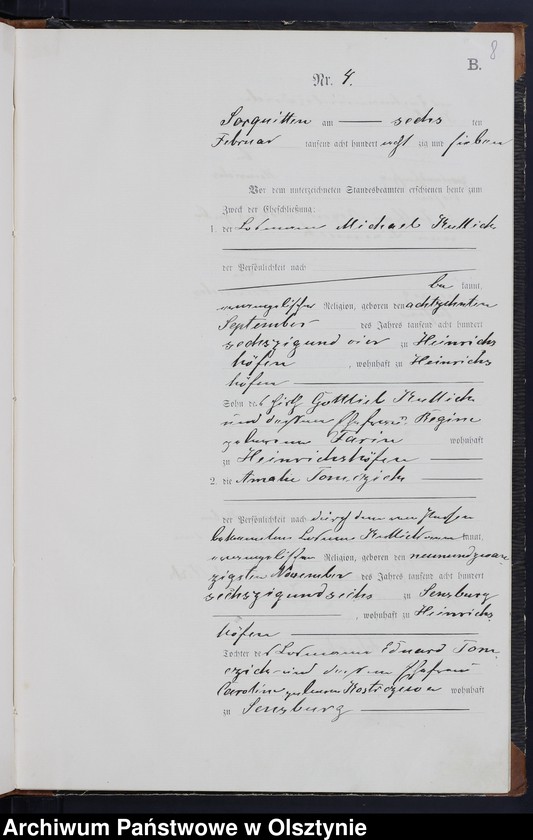 8
B.
Nr. 4.
Sorquitten am sechs ten
Februar tausend acht hundert acht zig und sieben
Vor dem unterzeichneten Standesbeamten erschienen heute zum
Zweck der Eheschließung:
1. der Losmann Michael Kullick
der Persönlichkeit nach
be kannt,
evangelischer Religion, geboren den achtzehnten
September des Jahres tausend acht hundert
sechszig und vier zu Heinrichs
höfen , wohnhaft zu Heinrichs
höfen
Sohn des Gottlieb Kullick
und dessen Ehefrau Regine
geborene wohnhaft
zu Heinrichshöfen
2. die Amalie Tomczick
der Persönlichkeit nach durch den
bekannten Losmann Kullick kannt,
evangelischer Religion, geboren den neunundzwan
zigsten November des Jahres tausend acht hundert
sechszig und sechs zu Sensburg
, wohnhaft zu Heinrichs
höfen
Tochter des Losmanns Eduard Tom
czick und dessen Ehefrau
Caroline geborene wohnhaft
zu Sensburg
Archiwum Państwowe w Olsztynie